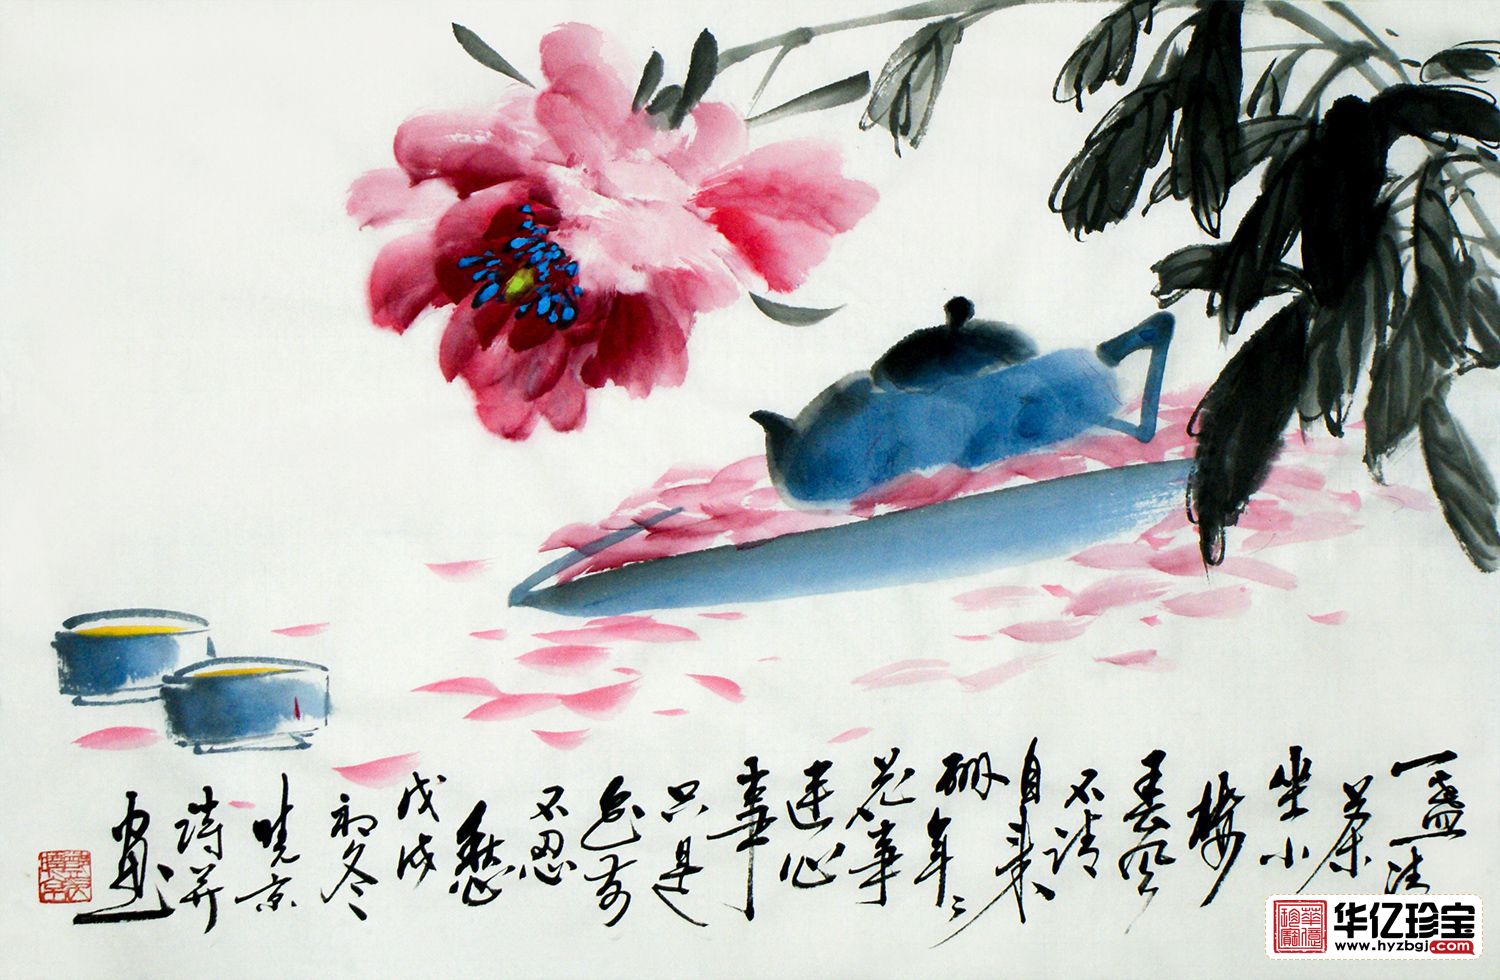 一盏清
茶
坐小
楼
春风
不请
自来
酬年々
花事
连心
事
只是
不忍
愁
戊戌
初冬
晓京
诗并
画
华亿珍宝
www.hyzbgj.com